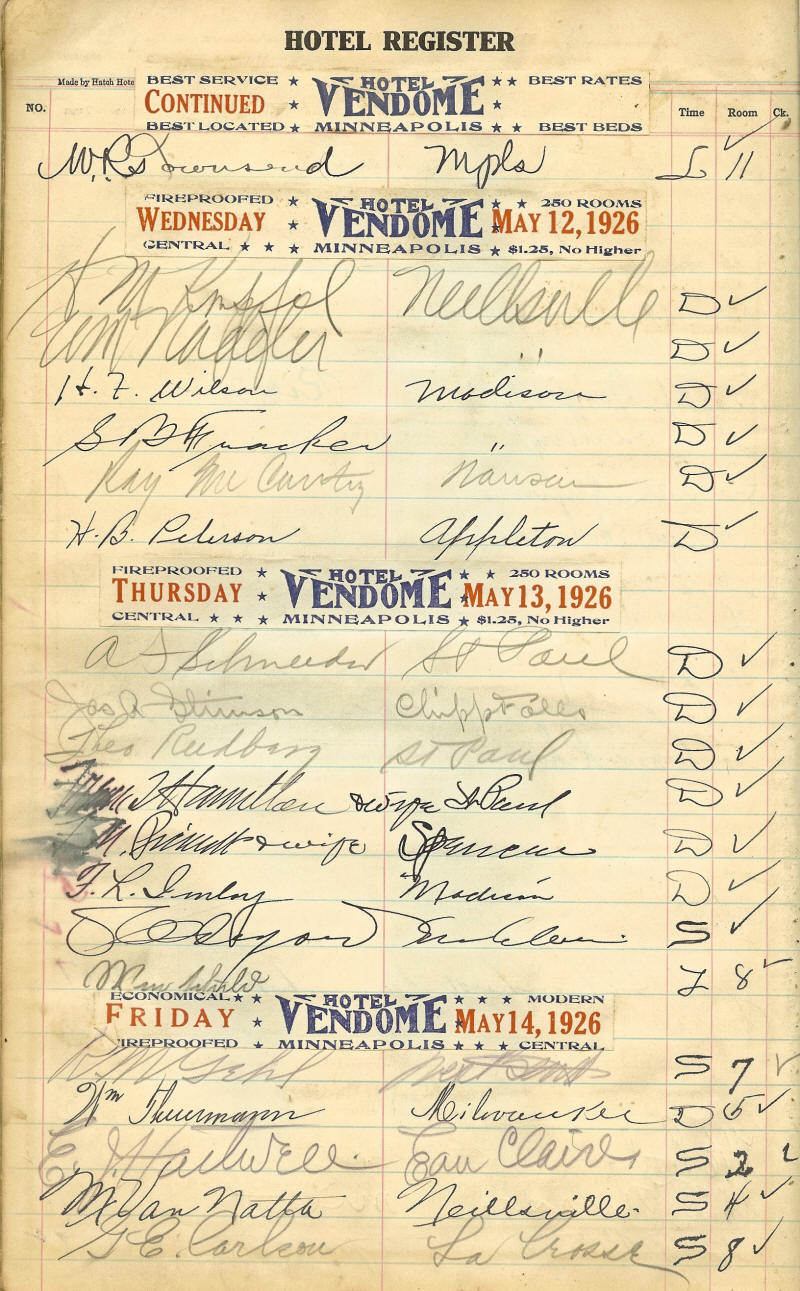 HOTEL REGISTER
Made by Hatch Hote
BEST SERVICE ★ HOTEL ★ ★ BEST RATES
NO. CONTINUED ★ VENDOME ★ Time Room Ck.
BEST LOCATED ★ MINNEAPOLIS ★ ★ BEST BEDS
W. R. Townsend Mpls L 11 ✓
FIREPROOFED ★ HOTEL ★ ★ 250 ROOMS
WEDNESDAY ★ VENDOME ★ MAY 12, 1926
CENTRAL ★ ★ ★ MINNEAPOLIS ★ $1.25, No Higher
H M Neillsville D ✓
Wm " D ✓
H. F. Wilson Madison D ✓
S B " D ✓
Ray Mc Carthy D ✓
H. B. Peterson Appleton D ✓
FIREPROOFED ★ HOTEL ★ ★ 250 ROOMS
THURSDAY ★ VENDOME ★ MAY 13, 1926
CENTRAL ★ ★ ★ MINNEAPOLIS ★ $1.25, No Higher
A Schneider St Paul D ✓
Jas A Stimson Chipp Falls D ✓
Theo St Paul D ✓
Hamilton & wife St Paul D ✓
& wife Spencer D ✓
F. L. Madison D ✓
S ✓
L 8 ✓
ECONOMICAL ★ ★ HOTEL ★ ★ ★ MODERN
FRIDAY ★ VENDOME ★ MAY 14, 1926
FIREPROOFED ★ MINNEAPOLIS ★ ★ ★ CENTRAL
R M Gehl S 7 ✓
Wm Thuermann Milwaukee D 5 ✓
E. J. Hallwell Eau Claire S 2
M Van Natta Neillsville S 4 ✓
G. E. Carlson La Crosse S 8 ✓